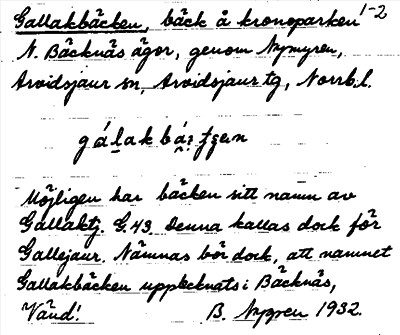 Gallakbäcken, bäck å kronoparken 1-2
N. Bäcknäs ägor, genom Nymyren,
Arvidsjaur sn, Arvidsjaur tg, Norrb.l.
Möjligen har bäcken sitt namn av
Gallaktj. G.43. Denna kallas dock för
Gallejaur. Nämnas bör dock, att namnet
Gallakbäcken upptecknats i Bäcknäs,
Vänd! B. Nygren 1932.